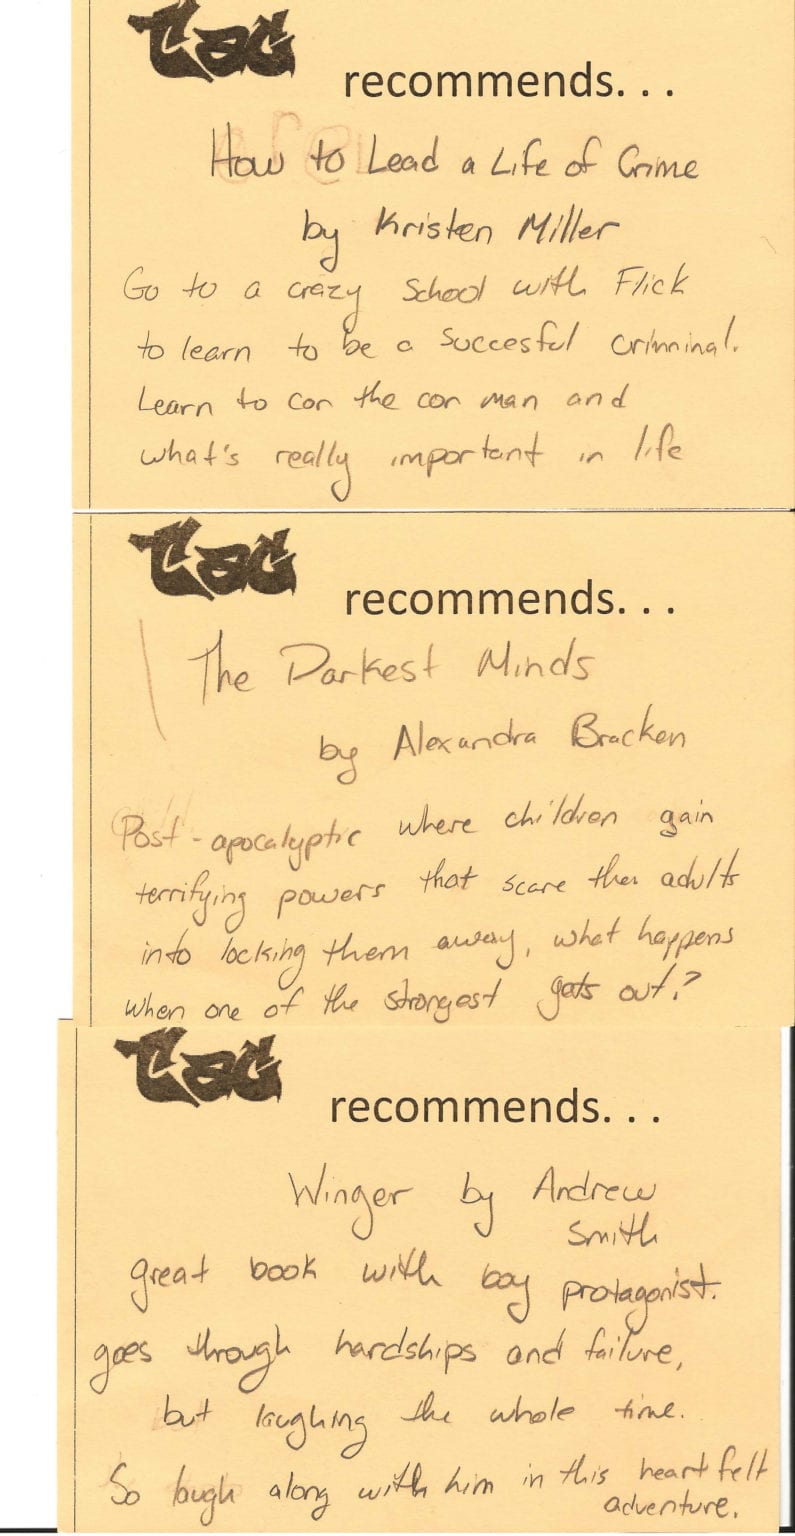 TAG
recommends. . .
How to Lead a Life of Crime
by Kristen Miller
Go to a crazy School with Flick
to learn to be a Succesful Criminal.
Learn to con the con man and
what's really important in life
TAG
recommends. . .
The Darkest Minds
by Alexandra Bracken
Post-apocalyptic where children gain
terrifying powers that scare the adults
into locking them away, what happens
when one of the strongest gets out?
TAG
recommends. . .
Winger by Andrew
Smith
great book with boy protagonist.
goes through hardships and failure,
but laughing the whole time.
So laugh along with him in this heart felt
adventure.